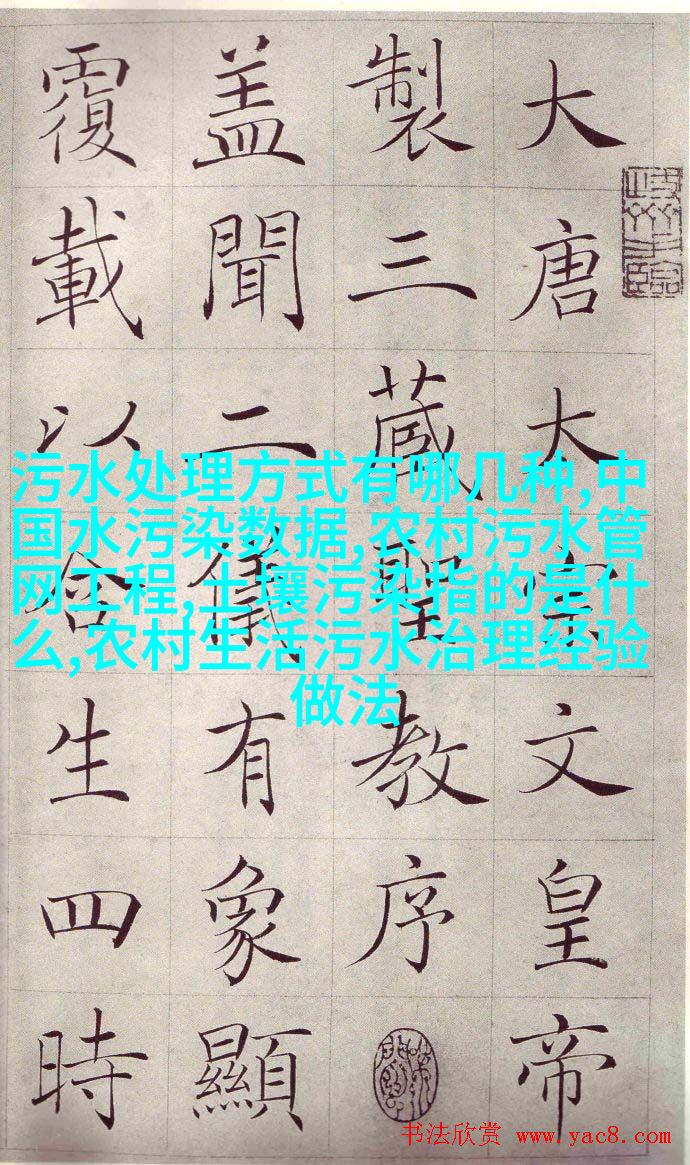 大唐太宗文皇帝
製三藏聖教序
蓋聞二儀有象顯
覆載以含生四時
污水处理方式有哪几种,中
国水污染数据,农村污水管
网工程,土壤污染指的是什
么,农村生活污水治理经验
做法
书法欣赏 www.yac8.com